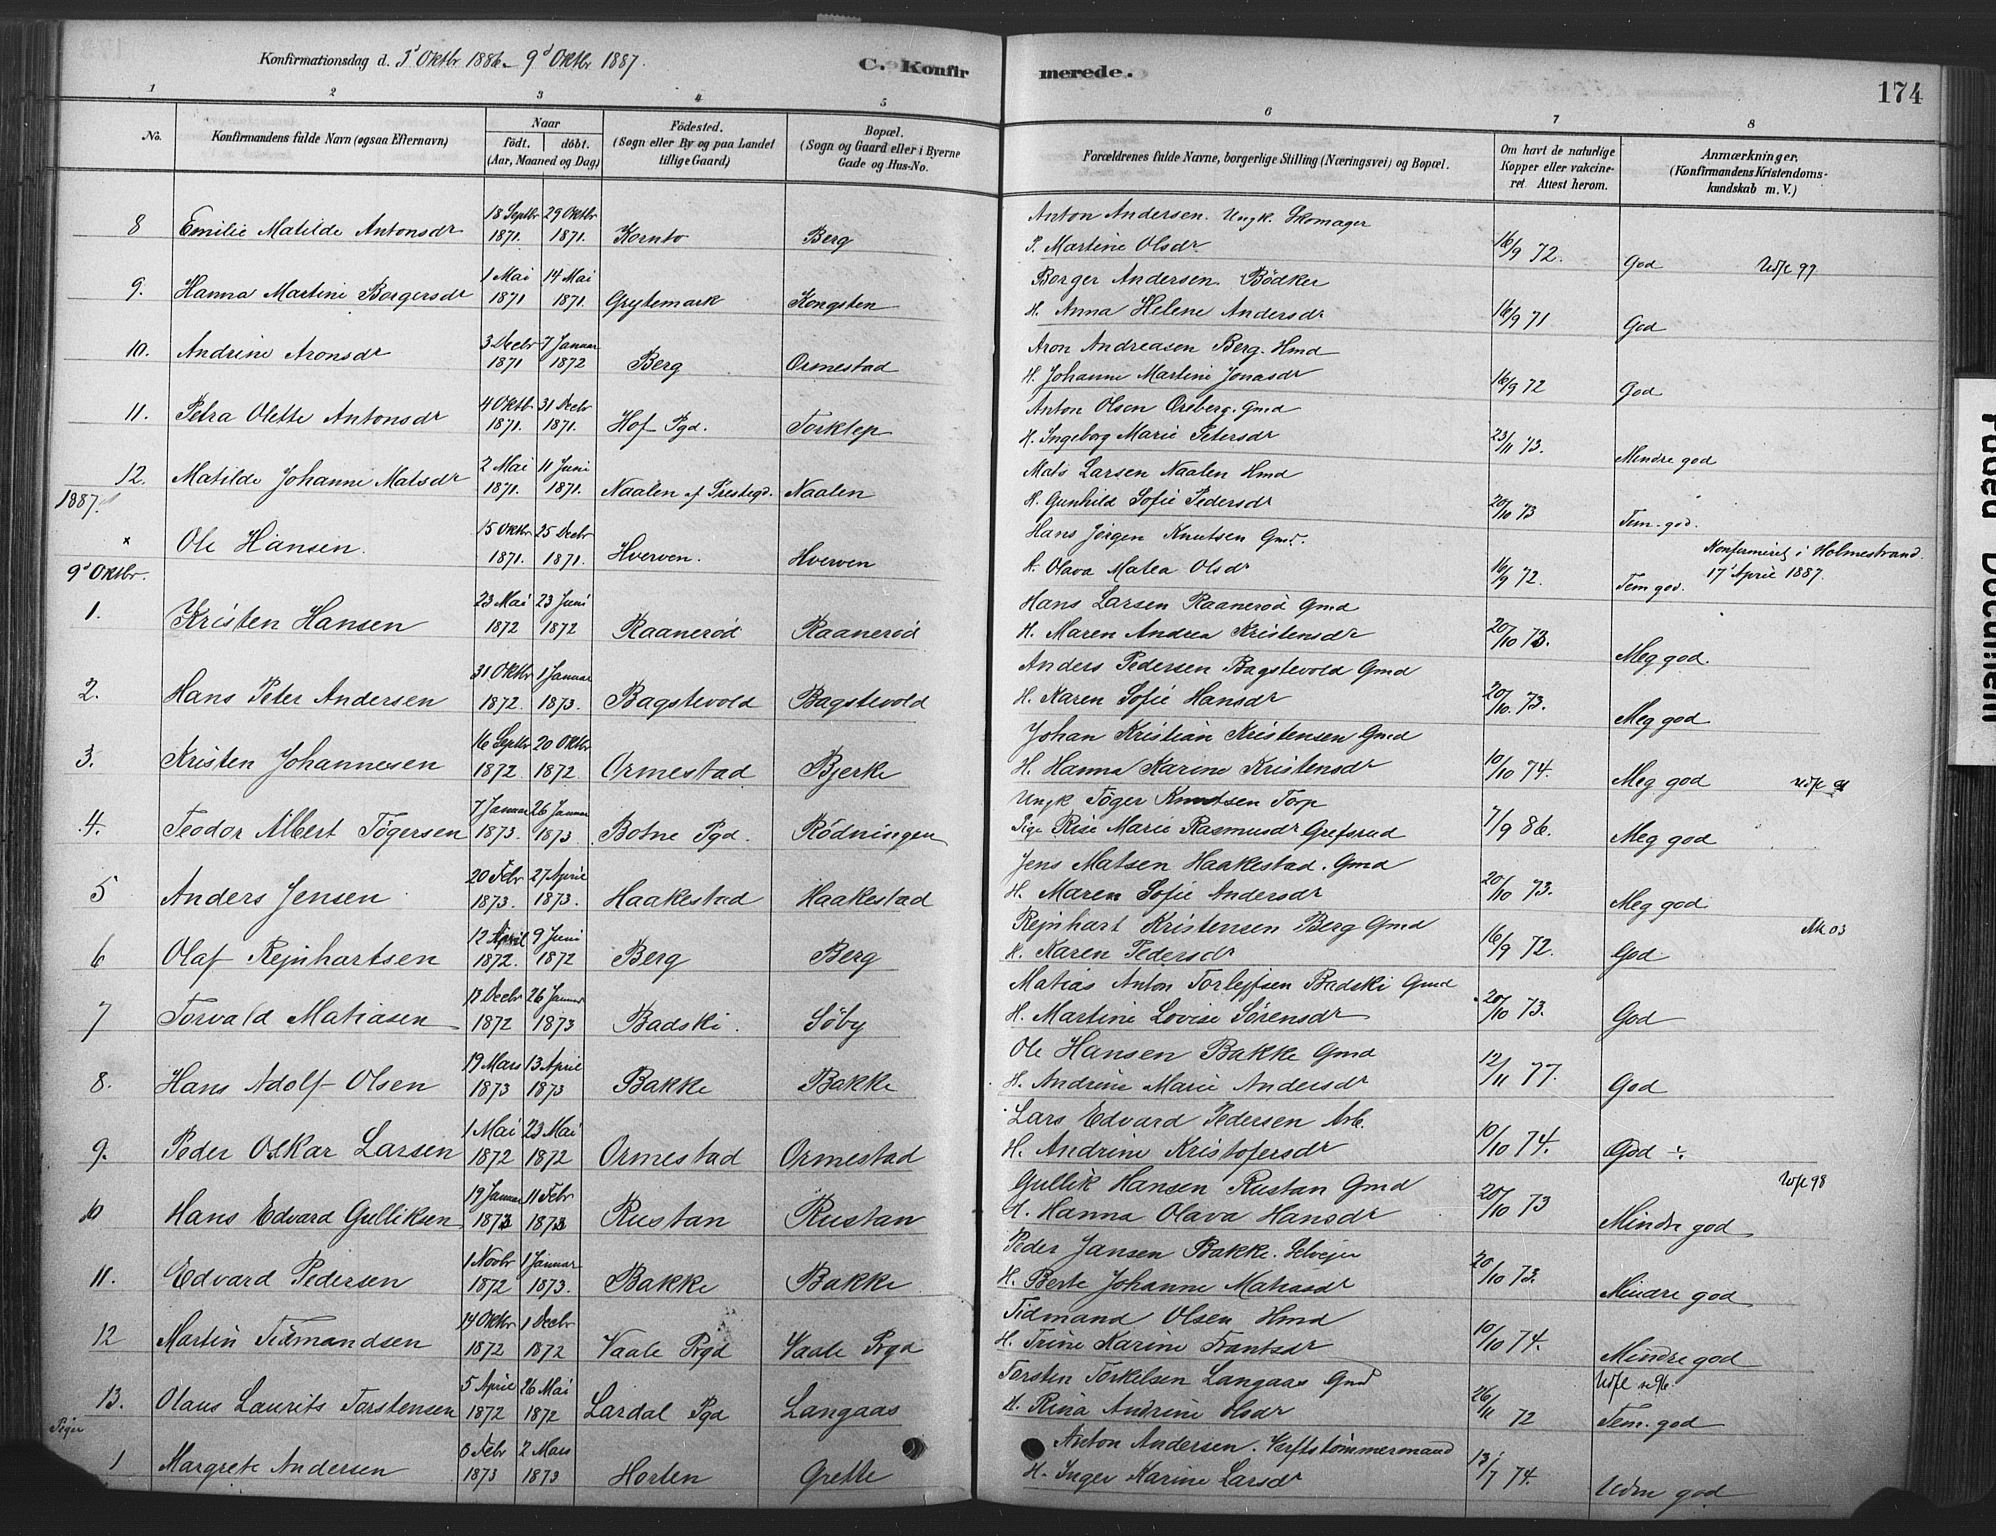 Konfirmationsdag d. 3' Oktbr 1886 - 9d Oktbr 1887.
C. Konfirmerede.
174
1 2 3 4 5 6 7 8
No. Konfirmandens fulde Navn (ogsaa Efternavn) Naar födt. döbt. (Aar, Maaned og Dag) Födested. (Sogn eller By og paa Landet tillige Gaard) Bopæl. (Sogn og Gaard eller i Byerne Gade og Hus-No. Forældrenes fulde Navne, borgerlige Stilling (Næringsvei) og Bopæl. Om havt de naturlige Kopper eller vakcineret. Attest herom. Anmærkninger. (Konfirmandens Kristendomskundskab m. V.)
8 Emilie Matilde Antonsdr 18 Septbr 1871. 29 Oktbr 1871. Kornto Berg Anton Andersen. Ungk. Skomager
P. Martine Olsdr 16/9 72. God Udfl 99
9. Hanna Martine Borgersdr 1 Mai 1871 14 Mai 1871. Grytemark Kongsten Borger Andersen Bödker
H. Anna Helene Andersdr 16/9 71 God
10. Andrine Aronsdr 3 Decbr 1871 7 Januar 1872 Berg Ormestad Aron Andreasen Berg. Hmd
H. Johanne Martine Jonasdr 16/9 72 God
11. Petra Olette Antonsdr 4 Oktbr 1871. 31 Decbr 1871. Hof Pgd. Torklep Anton Olsen Oreberg. Gmd
H. Ingeborg Marie Petersdr 23/11 73. Mindre god
12. Matilde Johanne Matsdr 2 Mai 1871. 11 Juni 1871. Naalen af Prestegd. Naalen Mats Larsen Naalen Hmd
H. Gunhild Sofie Pedersdr 20/10 73 Tem. god.
1887.
x Ole Hansen. 15 Oktbr 1871. 25 Decbr 1871. Hverven. Hverven Hans Jörgen Knutsen Gmd.
H. Olava Matea Olsdr 16/9 72. Tem god. Konfirmeret i Holmestrand 17' April 1887.
9d Oktbr.
1. Kristen Hansen 23 Mai 1872 23 Juni 1872 Raanerød Raanerød Hans Larsen Raanerød Gmd
H. Maren Andrea Kristensdr 20/10 73. Meg god.
2. Hans Peter Andersen 31 Oktbr 1872. 1 Januar 1873. Bagstevold Bagstevold Anders Pedersen Bagstevold Gmd
H. Karen Sofie Hansdr 20/10. 73. Meg god
3. Kristen Johannesen 16 Septbr 1872. 20 Oktbr 1872. Ormestad Bjerke Johan Kristian Kristensen Gmd
H. Hanna Karine Kristensdr 10/10 74. Meg god Udfl 91
4. Teodor Albert Tögersen 7 Januar 1873. 26 Januar 1873. Botne Pgd. Rödningen Ungk Töger Knutsen Torp
Pige Rise Marie Rasmusdr Grefsrud 7/9 86. Meg god
5 Anders Jensen 20 Febr 1873. 27 April 1873. Haakestad Haakestad Jens Matsen Haakestad. Gmd
H. Maren Sofie Andersdr 20/10 73. Meg god.
6 Olaf Rejnhartsen 12 April 1872. 9 Juni 1872 Berg Berg Rejnhart Kristensen Berg Gmd
H. Karen Pedersdr 16/9 72. God Att 03
7 Torvald Matiasen 13 Decbr 1872 26 Januar 1873 Badski. Søby Matias Anton Torlejfsen Badski Gmd
H. Martine Lovise Sörensdr 20/10 73. God
8. Hans Adolf Olsen 19 Mars 1873 13 April 1873 Bakke Bakke Ole Hansen Bakke Gmd
H. Andrine Marie Andersdr 12/11 77. God
9. Peder Oskar Larsen 1 Mai 1872 23 Mai 1872 Ormestad Ormestad Lars Edvard Pedersen Arb.
H. Andrine Kristofersdr 10/10 74. God ÷.
10 Hans Edvard Gulliksen 19 Januar 1873 11 Febr 1873 Rustan Rustan Gullik Hansen Rustan Gmd
H. Hanna Olava Hansdr 20/10 73 Mindre god Udfl 98
11. Edvard Pedersen 1 Novbr 1872 1 Januar 1873. Bakke Bakke Peder Jansen Bakke. Selvejer
H. Berte Johanne Matiasdr 20/10 73. Mindre god
12 Martin Tidmandsen 14 Oktbr 1872 1 Decbr 1872 Vaale Prgd Vaale Prgd Tidmand Olsen Hmd
H. Trine Karine Frantsdr 10/10 74. Mindre god
13. Olaus Laurits Torstensen 5 April 1872 26 Mai 1872 Lardal Pgd Langaas Torsten Torkelsen Langaas Gmd
H. Rina Andrine Olsdr 26/11 72 Udfl 96. Tem. god
Piger
1 Margrete Andersen 6 Febr 1873 2 Mars 1873 Horten Grette Anton Andersen. Verftstömmermand
H. Inger Karine Larsdr 13/7 74. Udm god
Faded Document